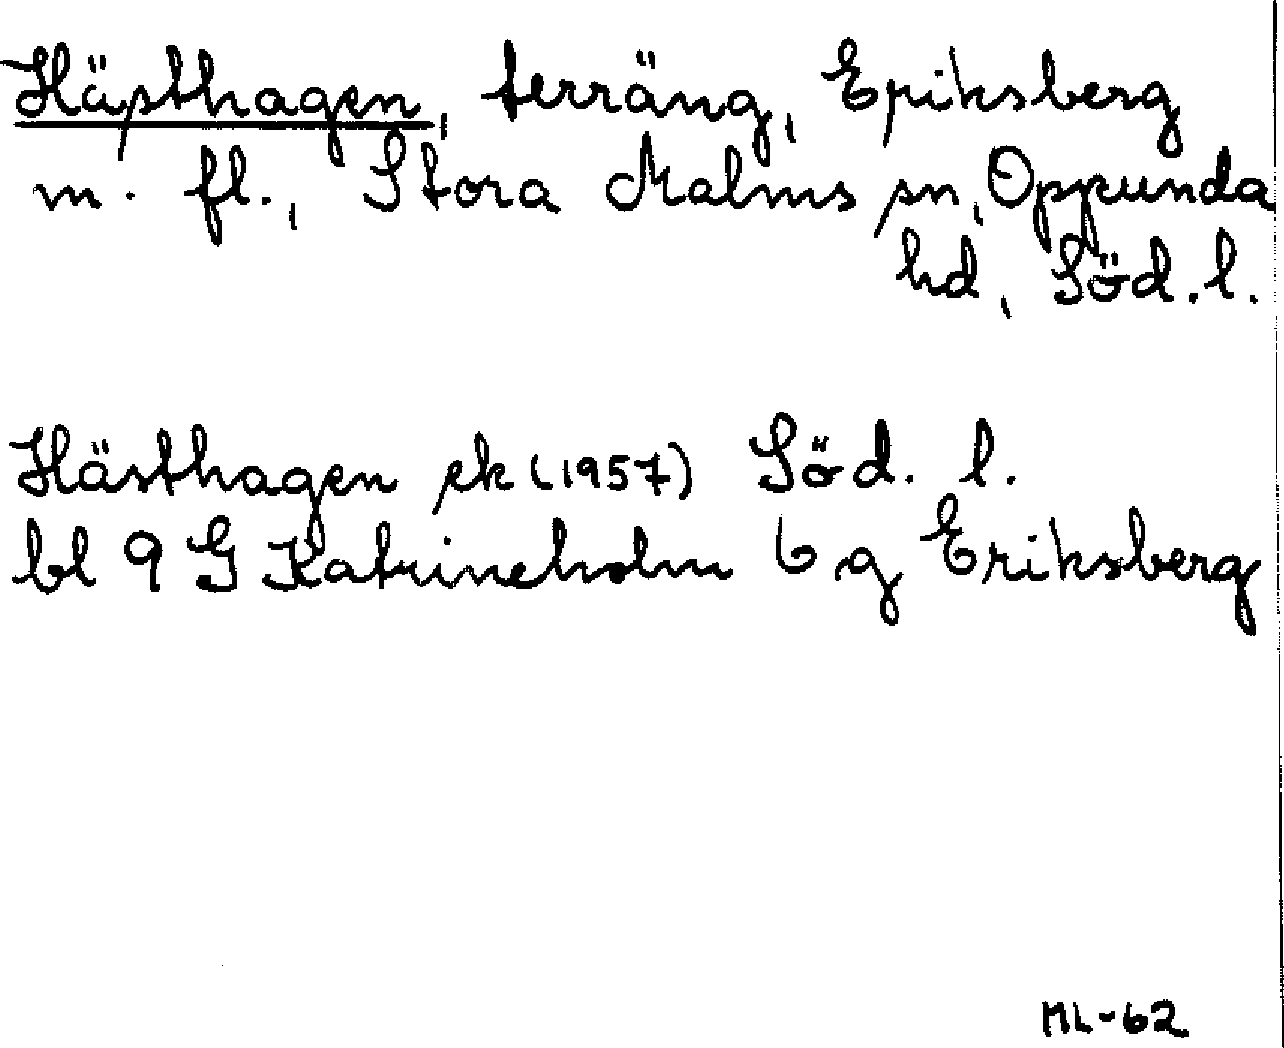 Hästhagen, terräng, Eriksberg
m. fl., Stora Malms sn, Oppunda
hd, Söd. l.
Hästhagen ek (1957) Söd. l.
bl 9 G Katrineholm 6 g Eriksberg
ML-62